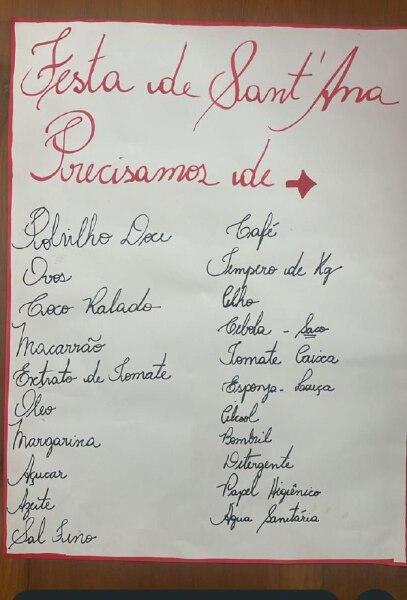 Festa de Sant'Ana
Precisamos de
Polvilho Doce
Ovos
Coco Ralado
Macarrão
Extrato de Tomate
Óleo
Margarina
Açucar
Azeite
Sal Fino
Café
Tempero de Kg
Alho
Cebola - Saco
Tomate Caixa
Esponja - Louça
Alcool
Bombril
Detergente
Papel Higiênico
Água Sanitária